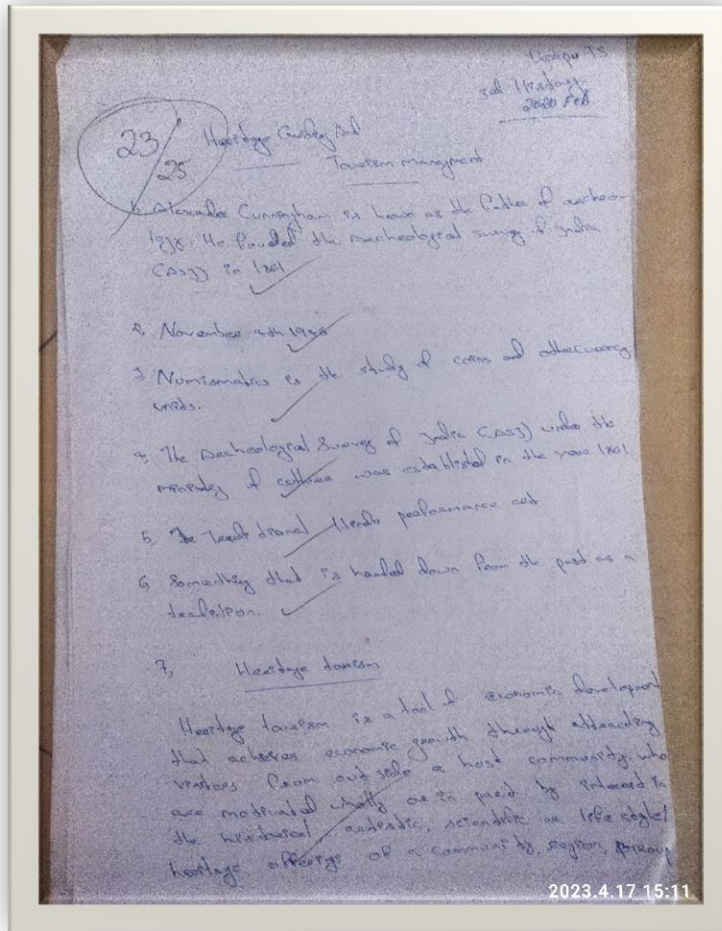 3rd History
2020 Feb
23/25
Heritage And
Tourism managment
1. Alexander Cunningham is known as the father of archeo-
logy. He founded the Archeological survey of India
(ASI) in 1861
2. November 4th 1946
3 Numismatics is the study of coins and other currency
units.
4. The Archeological Survey of India (ASI) under the
ministry of culture was established in the year 1861
5. The traditional Hindu performance art
6 Something that is handed down from the past as a
tradition.
7, Heritage tourism
Heritage tourism is a tool of economic development
that achieves economic growth through attracting
visitors from out side a host community, who
are motivated wholly or in part by interest in
the historical, artistic, scientific or life style/
heritage offerings of a community, region,
2023.4.17 15:11